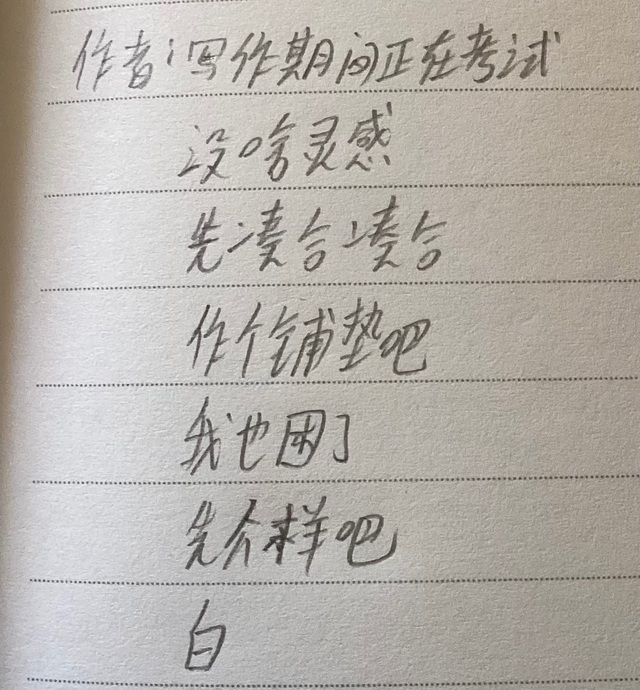 作者：写作期间正在考试
没啥灵感
先凑合凑合
作个铺垫吧
我也困了
先介样吧
白